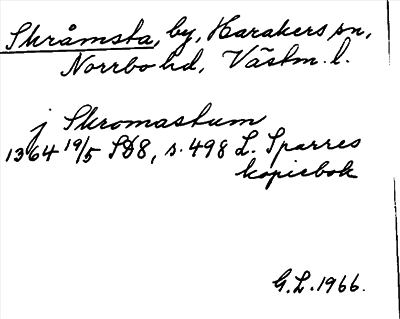 Skråmsta, by, Harakers sn,
Norrbo hd, Västm. l.
j Skromastum
1364 19/5 SD8, s. 498 L. Sparres
kopiebok
G.L. 1966.